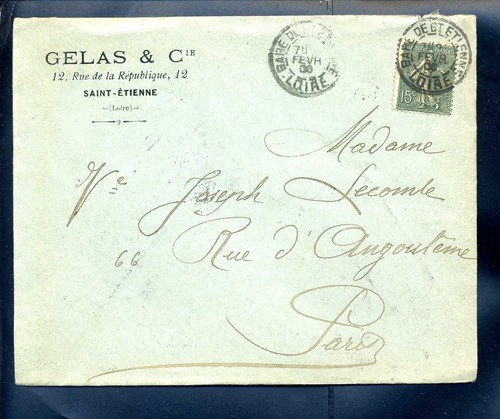 GELAS & CIE
12, Rue de la République, 12
SAINT-ÉTIENNE
(Loire)
GARE DE ST ETIENNE
7
FEVR
LOIRE
GARE DE ST ETIENNE
7
FEVR
LOIRE
15c
Madame
Vve Joseph Lecomte
66 Rue d'Angoulême
Paris